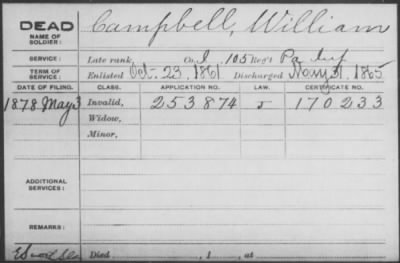 DEAD Campbell, William
NAME OF SOLDIER:
SERVICE: Late rank, Co. I, 105 Reg't Pa Inf
TERM OF SERVICE: Enlisted Oct. 23, 1861 Discharged May 31, 1865
DATE OF FILING. CLASS. APPLICATION NO. LAW. CERTIFICATE NO.
1878 May 3 Invalid, 253874 170233
Widow,
Minor,
ADDITIONAL SERVICES:
Died , 1 , at